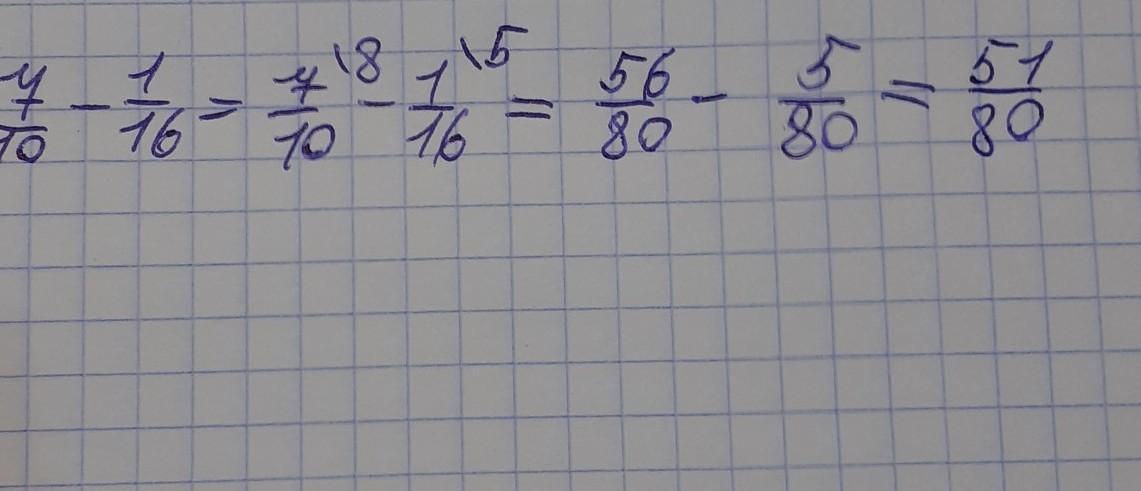 7/10 - 1/16 = 7/10 \8 - 1/16 \5 = 56/80 - 5/80 = 51/80